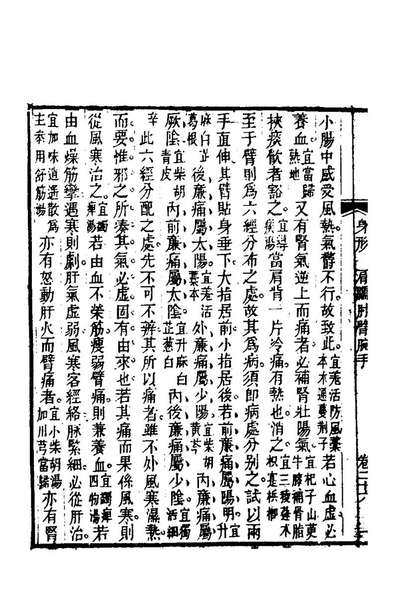 身形 肩髃肘臂腕手 卷二十六
小腸中感受風熱氣鬱不行故致此宜羌活防風藁本木通蔓荊子若心血虛必
養血宜當歸熱地又有腎氣逆上而痛者必補腎壯陽氣宜杞子山萸牛膝補骨脂
挾痰飲者豁之宜導痰湯當肩背一片冷痛有熱也消之宜三稜莪朮
至于臂則爲六經分布之處故其爲病須卽病處分別之試以兩
手直伸其臂貼身垂下大指居前小指居後若前廉痛屬陽明宜升
麻白芷葛根後廉痛屬太陽宜羌活藁本外廉痛屬少陽宜柴胡黃芩內廉痛屬
厥陰宜柴胡青皮內前廉痛屬太陰宜升麻白芷葱白內後廉痛屬少陰
辛此六經分配之處先不可不辨其所以痛者雖不外風寒濕熱
而要惟邪之所湊其氣必虛固有由來也若其痛而果係風寒則
從風寒治之宜蠲痹湯若由血不榮筋瘦弱臂痛則兼養血宜蠲痹四物湯若
由血燥筋攣遇寒則劇肝氣虛弱風寒客經絡脈緊細必從肝治
宜加味逍遙散爲主參用舒筋湯亦有怒動肝火而臂痛者宜小柴胡湯加川芎當歸亦有腎